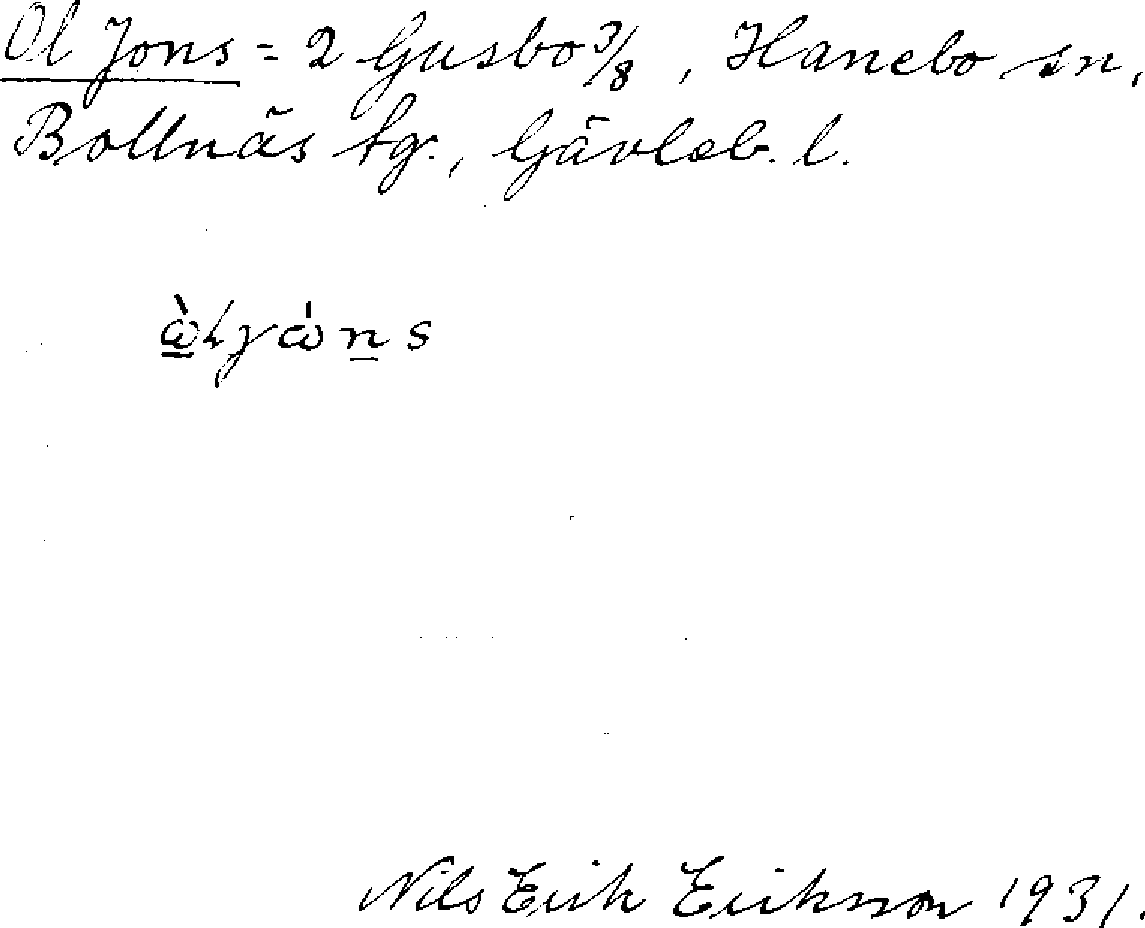 Ol Jons = 2 Gusbo 3/8, Hanebo sn,
Bollnäs tg., Gävleb. l.
Nils Erik Erikson 1931.